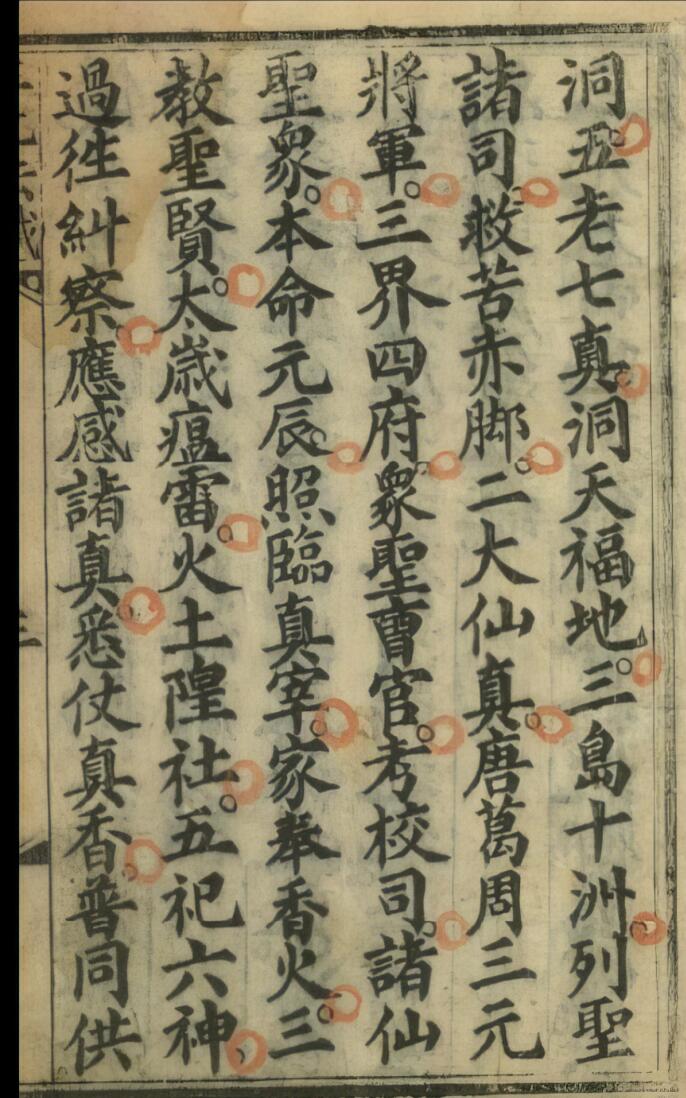 洞五老七真洞天福地三島十洲列聖
諸司救苦赤脚二大仙真唐葛周三元
將軍三界四府衆聖曹官考校司諸仙
聖衆本命元辰照臨真宰家奉香火三
教聖賢太歲瘟雷火土隍社五祀六神
過徃糾察應感諸真悉仗真香普同供